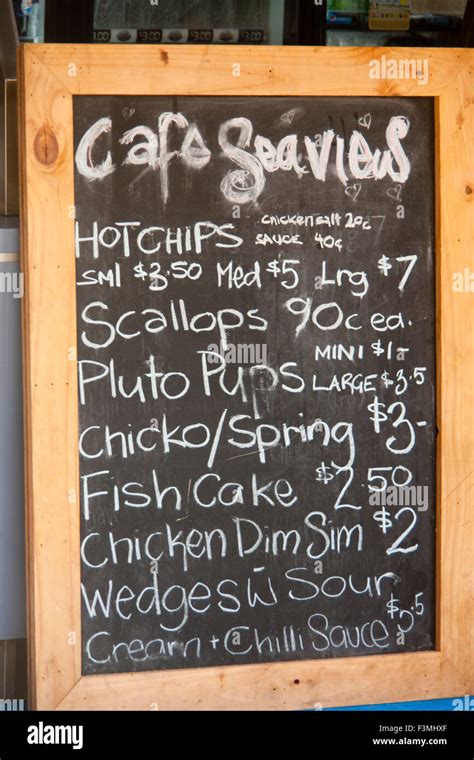 3.00 13.00 3.00
Cafe Seaviews
HOT CHIPS chicken salt 20c
SAUCE 40c
sml $3.50 Med $5 Lrg $7
Scallops 90c ea.
Pluto Pups MINI $1-
LARGE $3.5
Chicko/Spring $3-
Fish Cake $2.50
Chicken Dim Sim $2
Wedges w Sour
Cream + Chilli Sauce $5.5
alamy
Image ID: F3MHXF
www.alamy.com